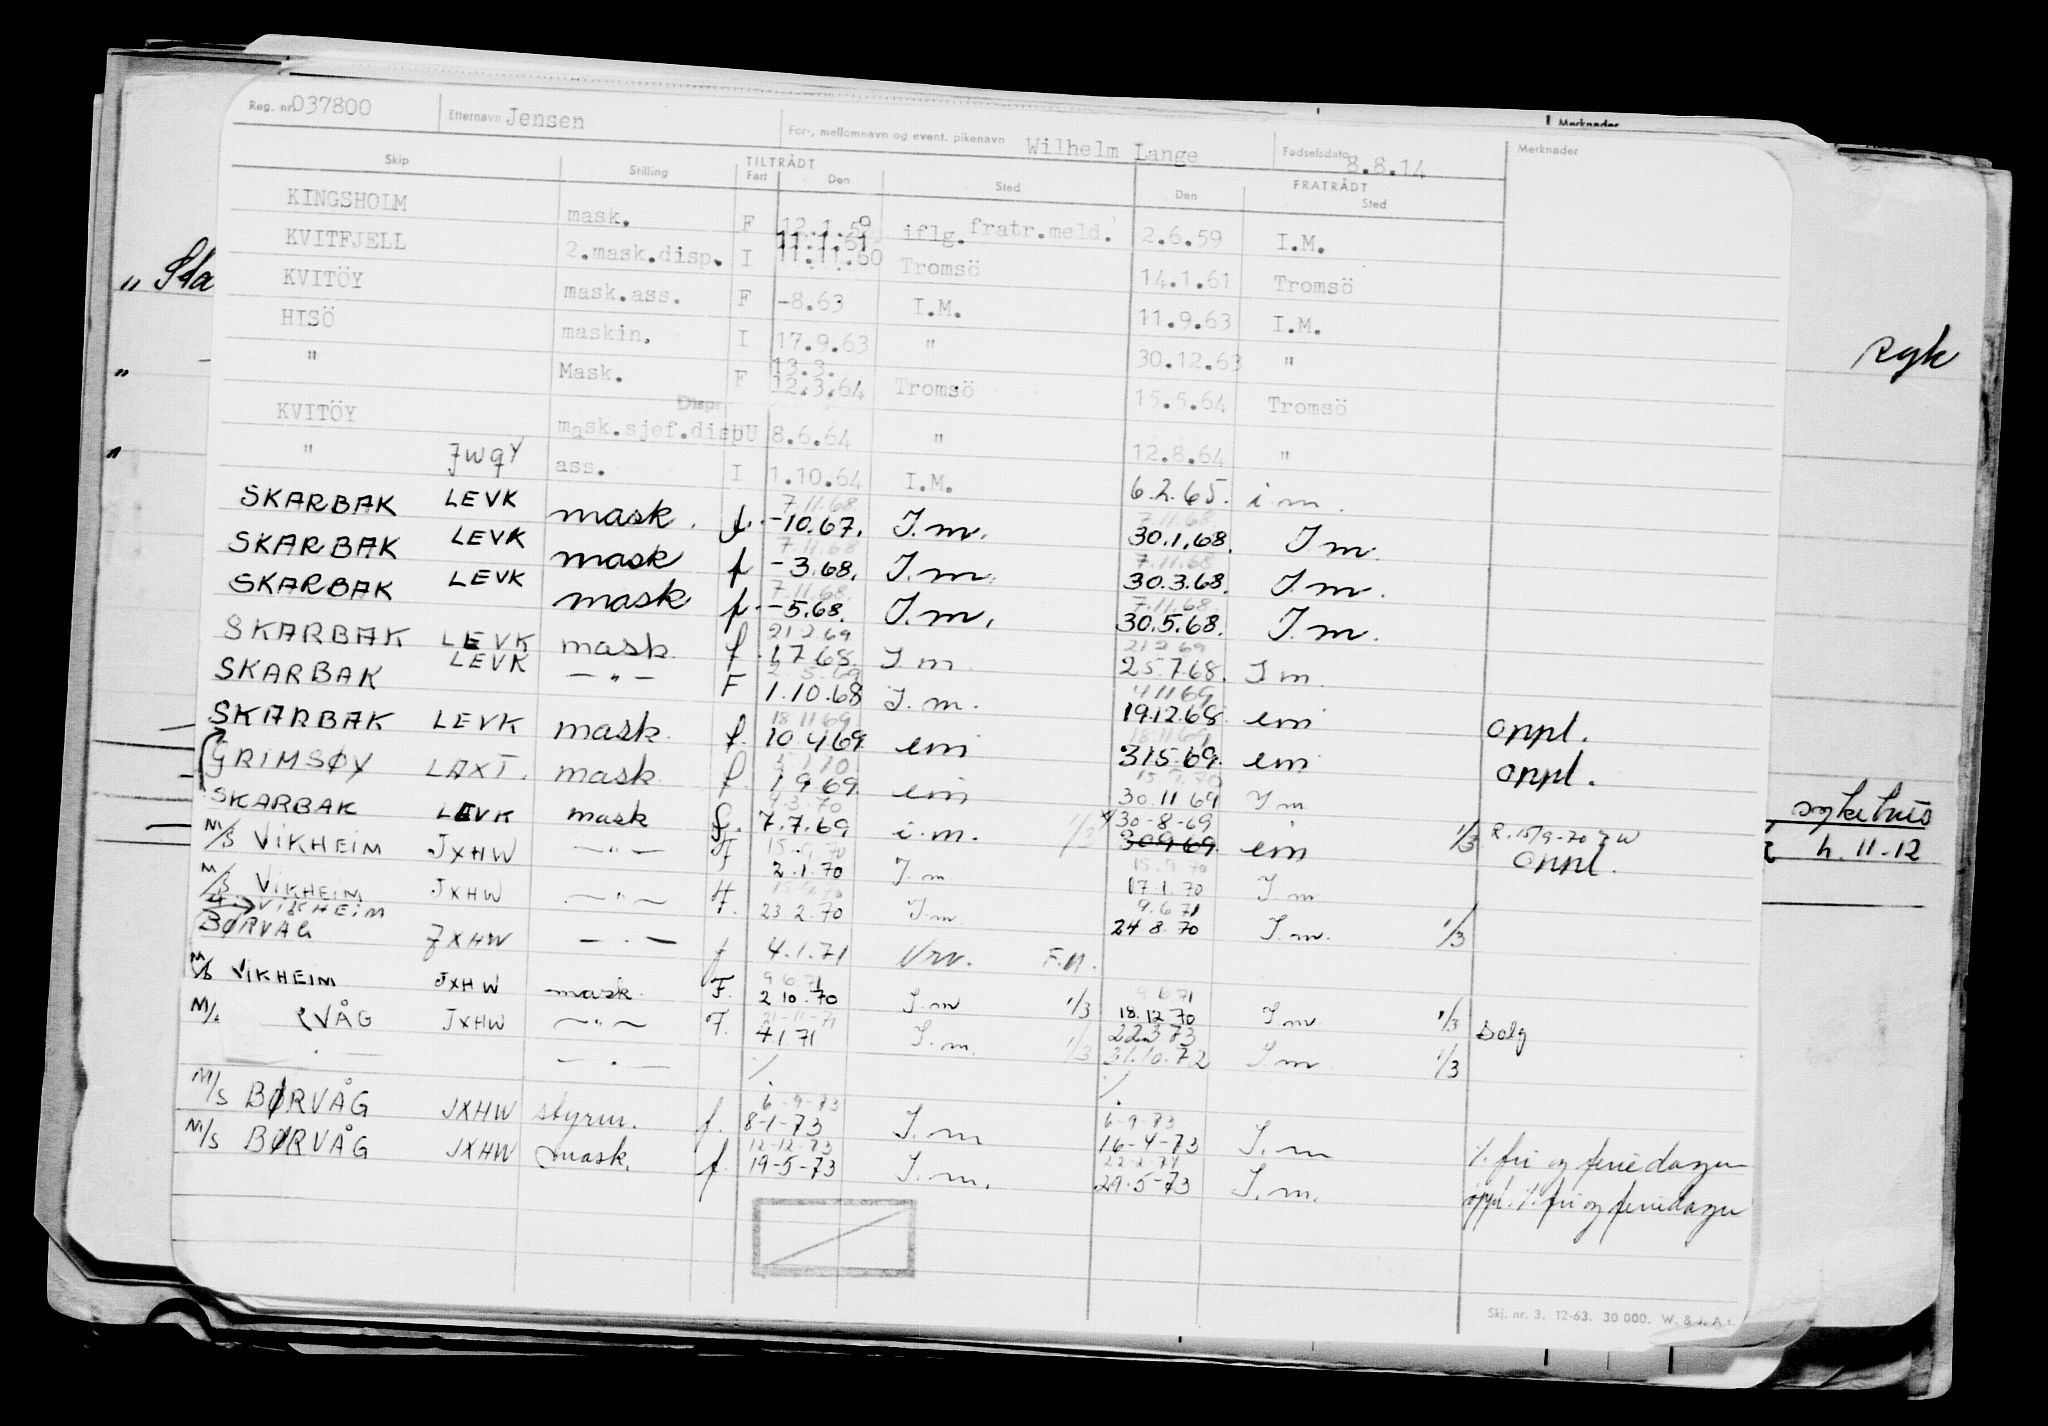 Reg. nr. 037800 Etternavn Jensen For-, mellomnavn og event. pikenavn Wilhelm Lange Fødselsdato 8.8.14 Merknader
Skip Stilling TILTRÅDT Fart Den Sted FRATRÅDT Den Sted
KINGSHOLM mask. F 12.1.59 iflg.fratr.meld. 2.6.59 I.M.
11.1.61
KVITFJELL 2.mask.disp. I 11.11.60 Tromsö 14.1.61 Tromsö
KVITÖY mask.ass. F -8.63 I.M. 11.9.63 I.M.
HISÖ maskin. I 17.9.63 " 30.12.63 "
13.3.
" Mask. F 12.3.64 Tromsö 15.5.64 Tromsö
Disp.
KVITÖY mask.sjef.disp U 8.6.64 " 12.8.64 "
" JWQY ass. I 1.10.64 I.M. 6.2.65. i.m.
7.11.68 7.11.68
SKARBAK LEVK mask. f. -10.67. I.m. 30.1.68. I m.
7.11.68 7.11.68
SKARBAK LEVK mask f -3.68. I.m. 30.3.68. I.m.
7.11.68. 7.11.68.
SKARBAK LEVK mask f. -5.68. I.m. 30.5.68. I.m.
21 2 69 21 2 69
SKARBAK LEVK mask. f. 1.7 68. I.m 25.7.68. I m.
2.5.69 4 11 69
SKARBAK LEVK — " — F 1.10.68 I.m. 19.12.68. em oppl.
18 11 69. 18 11 69
SKARBAK LEVK mask. f. 10 4 69. em 31.5.69. em oppl.
5 1 70 15.9.70
GRIMSØY LAXT. mask f. 1 9 69. em 30.11 69 I m
4.3.70
SKARBAK LEVK mask f. 7.7.69 i.m. 1/3 30-8-69 30 9 69. em 1/3 R. 15/9-70 oppl.
15.9.70 15.9.70
M/S VIKHEIM JXHW — " — F 2.1.70 I.m 17.1.70 I.m
15.9.70 9.6 71
M/S VIKHEIM JXHW — " — F. 23.2.70 I.m. 24 8.70 I.m. 1/3
VIKHEIM
BØRVÅG JXHW — " — f 4.1.71 Nrv. F.N.
9 6 71 9.6.71
M/S VIKHEIM JXHW mask. F. 2 10.70 I.m 1/3 18.12 70 I.m. 1/3 salg
21-11-71 22 3 73
M/S VÅG JXHW — " — F. 4.1.71 I.m. 1/3 31.10.72 I.m 1/3
6-9-73 6-9-73
M/S BØRVÅG JXHW styrm. f. 8-1-73 I.m 16-4-73 I.m ./. fri og feriedager
12-12-73 22-2-74
M/S BØRVÅG JXHW mask. f. 19-5-73 I.m. 29-5-73 I.m. oppl. ./. fri og feriedager
Skj. nr. 3. 12-63. 30 000. W. & J. A.s.
Merknader
" Sta
"
"
syk
sykehus
h. 11-12